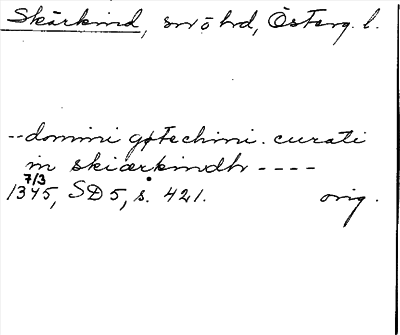 Skärkind, sn o hd, Österg. l.
--domini gøtechini. curati
in skiærkindh ----
7/3
1345, SD 5, s. 421. orig.